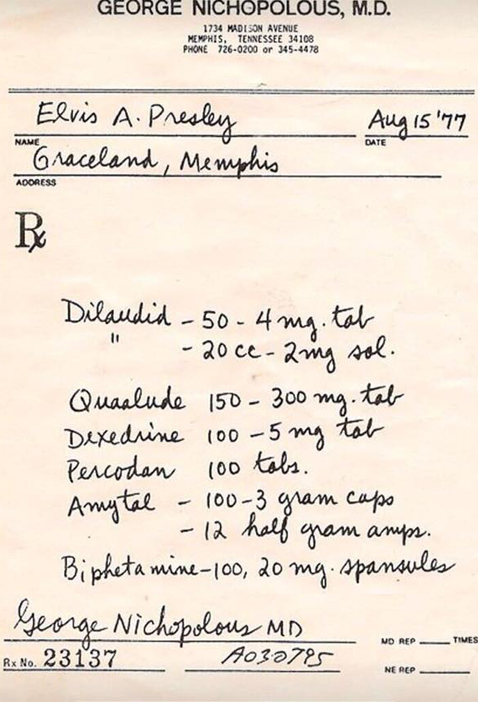 GEORGE NICHOPOLOUS, M.D.
1734 MADISON AVENUE
MEMPHIS, TENNESSEE 34108
PHONE 726-0200 or 345-4478
Elvis A. Presley Aug 15 '77
NAME DATE
Graceland, Memphis
ADDRESS
Rx
Dilaudid - 50 - 4 mg. tab
" - 20 cc - 2mg sol.
Quaalude 150 - 300 mg. tab
Dexedrine 100 - 5 mg tab
Percodan 100 tabs.
Amytal - 100 - 3 gram caps
- 12 half gram amps.
Biphetamine - 100, 20 mg. spansules
George Nichopolous MD
MD REP ____ TIMES
Rx No. 23137 A030795
NE REP ____